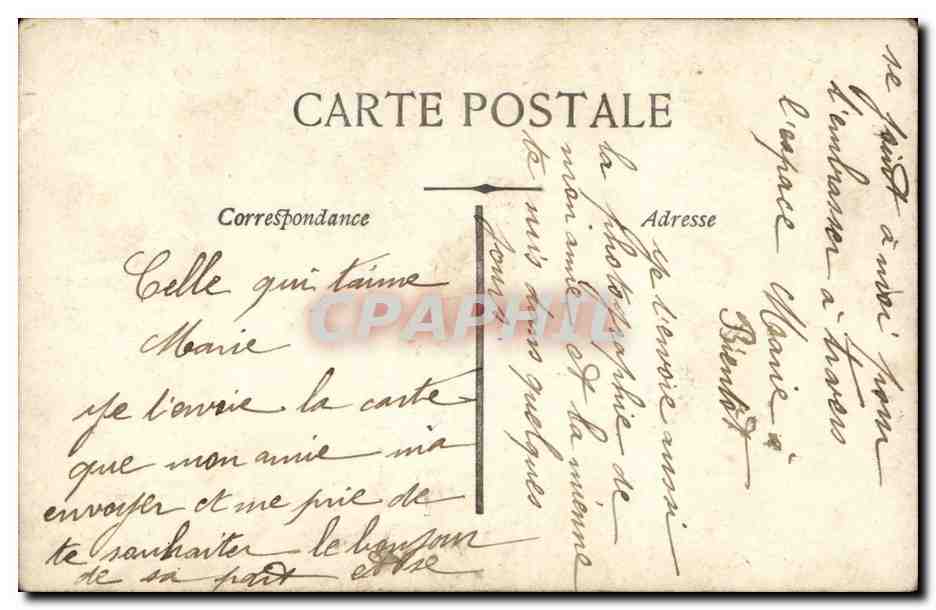 CARTE POSTALE
Correspondance
Adresse
Celle qui t'aime
Marie
Je t'envoie la carte
que mon amie m'a
envoyer et me prie de
te souhaiter le bonjour
de sa part et se
se joint à moi pour
d'embrasser à travers
l'espace Marie à
Bientôt
Je t'envoie aussi
la photographie de
mon amie et la mienne
te suis dans quelques
jours
CPAPHIL